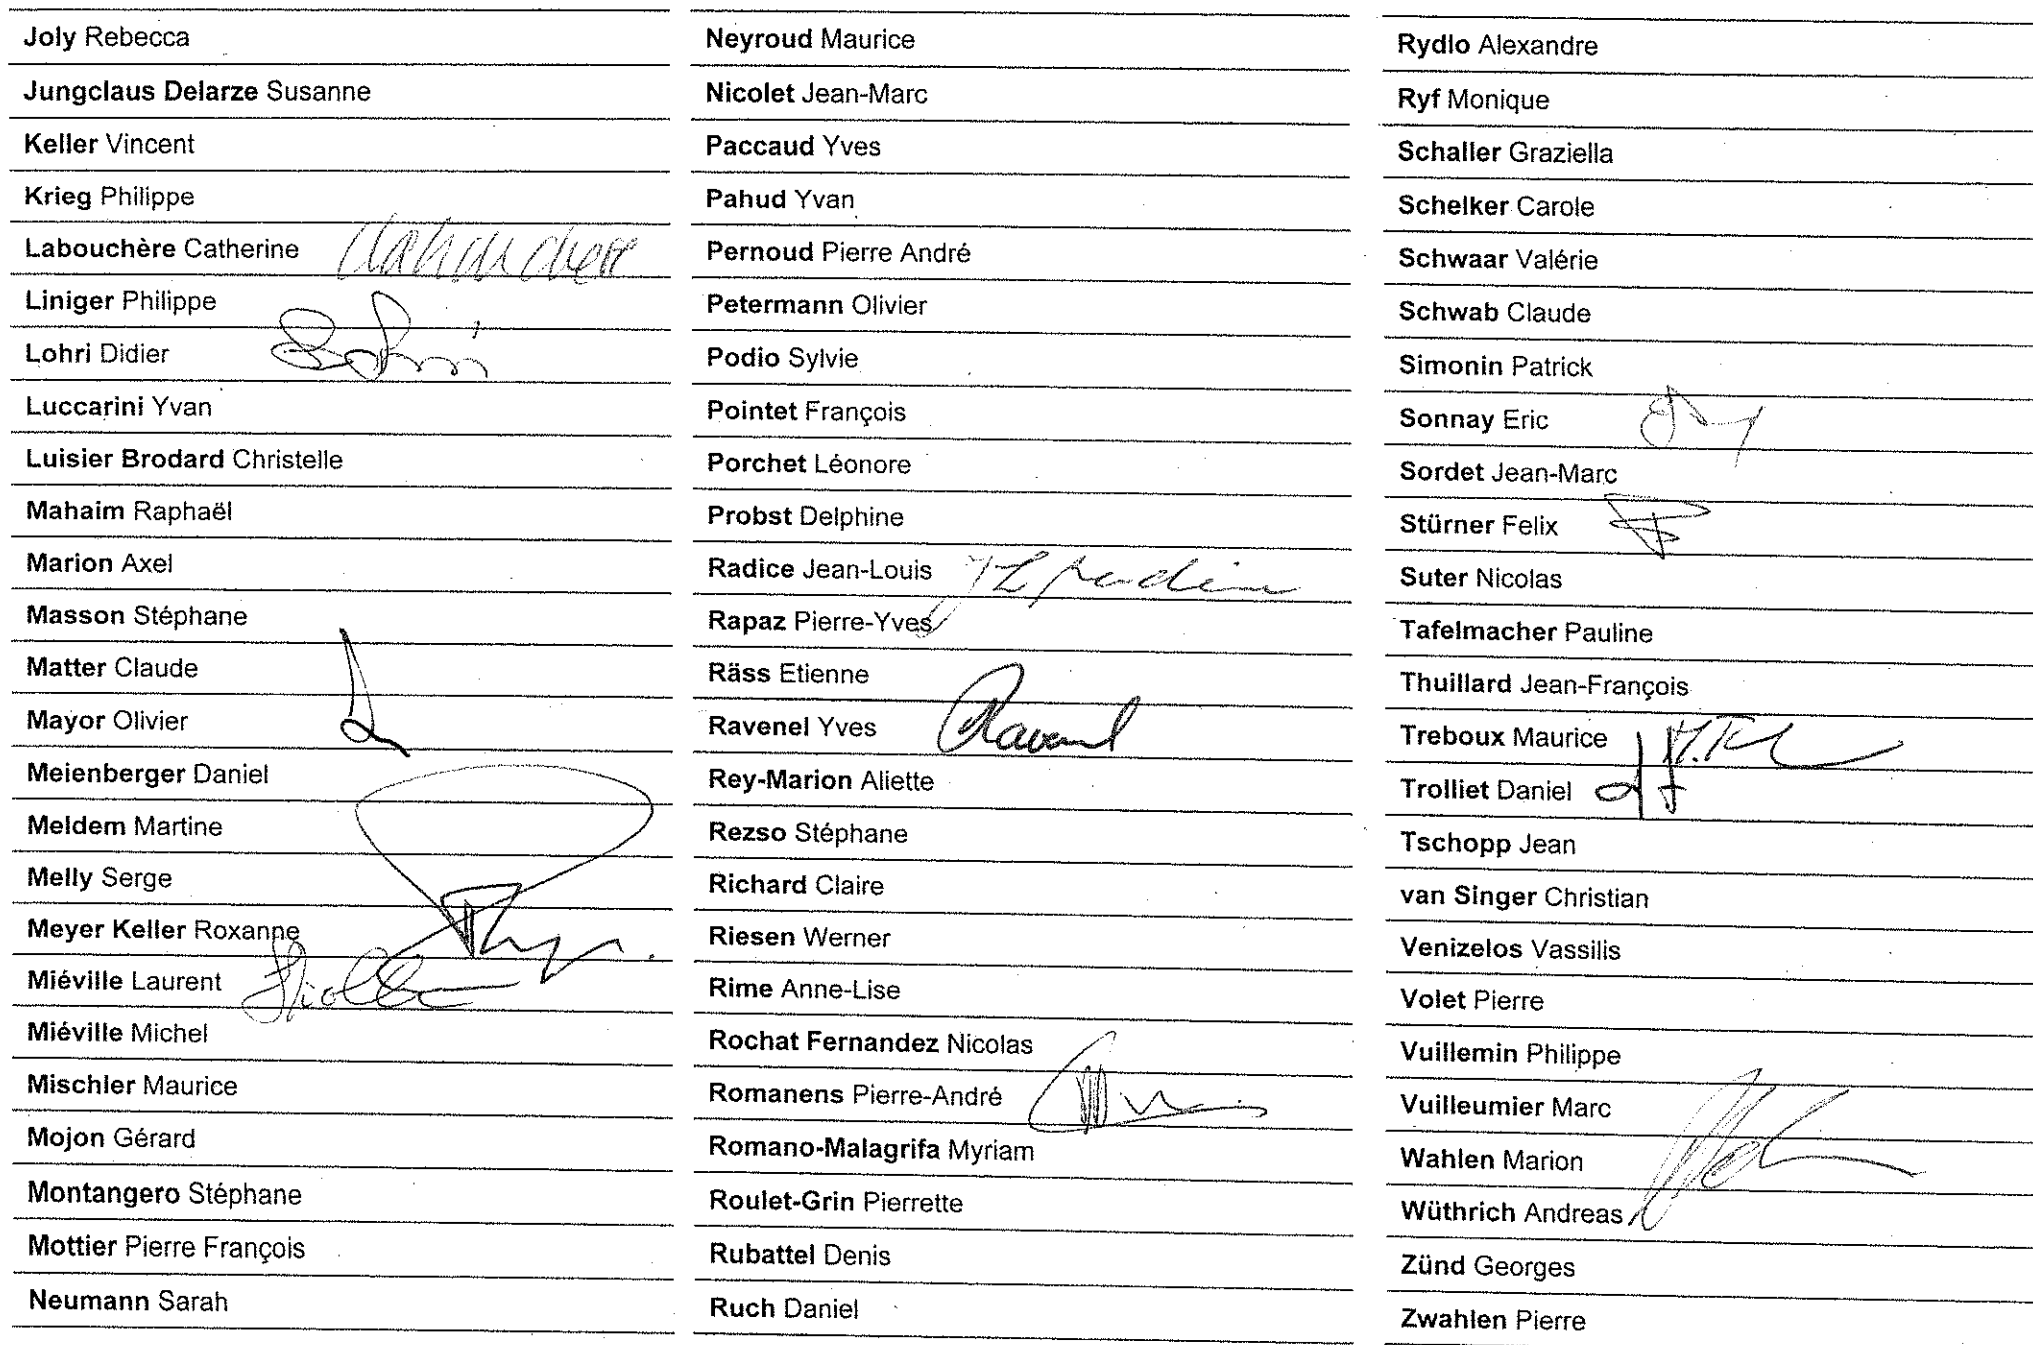 Joly Rebecca
Jungclaus Delarze Susanne
Keller Vincent
Krieg Philippe
Labouchère Catherine
Liniger Philippe
Lohri Didier
Luccarini Yvan
Luisier Brodard Christelle
Mahaim Raphaël
Marion Axel
Masson Stéphane
Matter Claude
Mayor Olivier
Meienberger Daniel
Meldem Martine
Melly Serge
Meyer Keller Roxanne
Miéville Laurent
Miéville Michel
Mischler Maurice
Mojon Gérard
Montangero Stéphane
Mottier Pierre François
Neumann Sarah
Neyroud Maurice
Nicolet Jean-Marc
Paccaud Yves
Pahud Yvan
Pernoud Pierre André
Petermann Olivier
Podio Sylvie
Pointet François
Porchet Léonore
Probst Delphine
Radice Jean-Louis JL Radice
Rapaz Pierre-Yves
Räss Etienne
Ravenel Yves Ravenel
Rey-Marion Aliette
Rezso Stéphane
Richard Claire
Riesen Werner
Rime Anne-Lise
Rochat Fernandez Nicolas
Romanens Pierre-André
Romano-Malagrifa Myriam
Roulet-Grin Pierrette
Rubattel Denis
Ruch Daniel
Rydlo Alexandre
Ryf Monique
Schaller Graziella
Schelker Carole
Schwaar Valérie
Schwab Claude
Simonin Patrick
Sonnay Eric
Sordet Jean-Marc
Stürner Felix
Suter Nicolas
Tafelmacher Pauline
Thuillard Jean-François
Treboux Maurice
Trolliet Daniel
Tschopp Jean
van Singer Christian
Venizelos Vassilis
Volet Pierre
Vuillemin Philippe
Vuilleumier Marc
Wahlen Marion
Wüthrich Andreas
Zünd Georges
Zwahlen Pierre